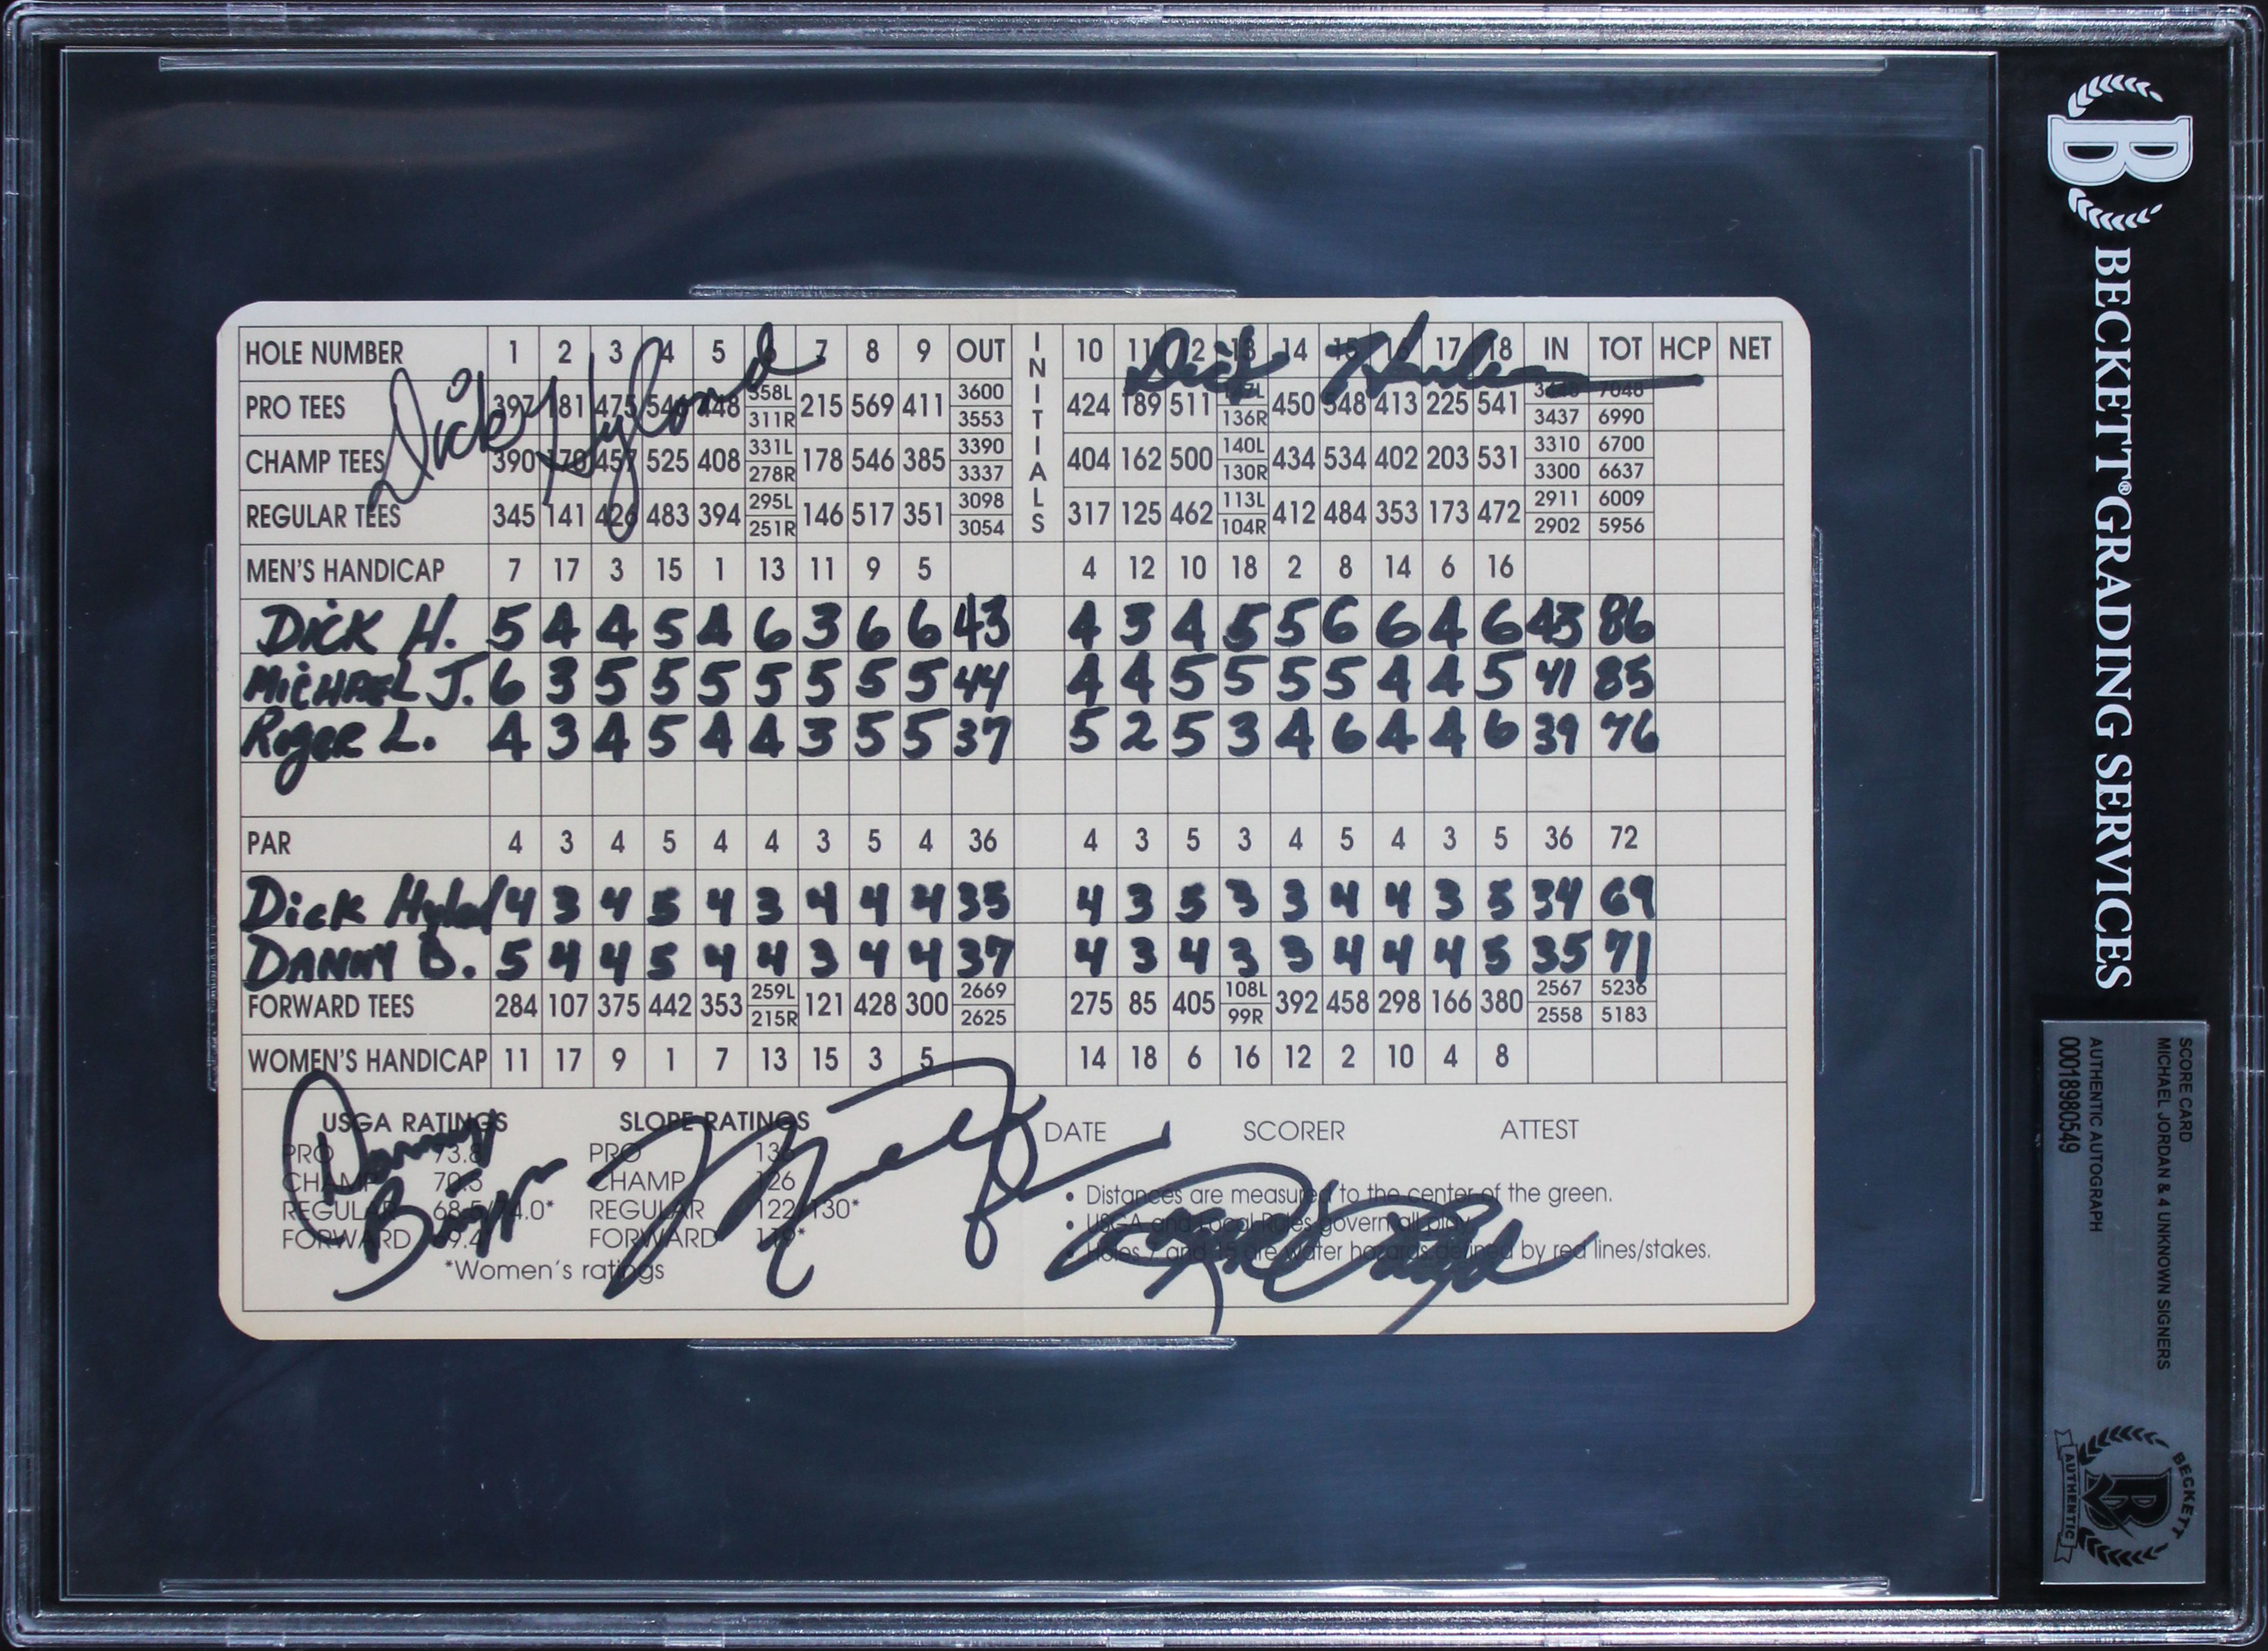 HOLE NUMBER 1 2 3 4 5 6 7 8 9 OUT INITIALS 10 11 12 13 14 15 16 17 18 IN TOT HCP NET
PRO TEES 397 181 475 448 358L 311R 215 569 411 3600 3553 424 189 511 136R 450 548 413 225 541 3437 7048 6990
CHAMP TEES 390 170 457 525 408 331L 278R 178 546 385 3390 3337 404 162 500 140L 130R 434 534 402 203 531 3310 3300 6700 6637
REGULAR TEES 345 141 426 483 394 295L 251R 146 517 351 3098 3054 317 125 462 113L 104R 412 484 353 173 472 2911 2902 6009 5956
Dick Hyland
MEN'S HANDICAP 7 17 3 15 1 13 11 9 5 4 12 10 18 2 8 14 6 16
Dick H. 5 4 4 5 4 6 3 6 6 43 4 3 4 5 5 6 6 4 6 43 86
MiCHAEL J. 6 3 5 5 5 5 5 5 5 44 4 4 5 5 5 5 4 4 5 41 85
Roger L. 4 3 4 5 4 4 3 5 5 37 5 2 5 3 4 6 4 4 6 39 76
PAR 4 3 4 5 4 4 3 5 4 36 4 3 5 3 4 5 4 3 5 36 72
Dick Hyland 4 3 4 5 4 3 4 4 4 35 4 3 5 3 3 4 4 3 5 34 69
DANNY B. 5 4 4 5 4 4 3 4 4 37 4 3 4 3 3 4 4 4 5 35 71
FORWARD TEES 284 107 375 442 353 259L 215R 121 428 300 2669 2625 275 85 405 108L 99R 392 458 298 166 380 2567 2558 5236 5183
WOMEN'S HANDICAP 11 17 9 1 7 13 15 3 5 14 18 6 16 12 2 10 4 8
USGA RATINGS SLOPE RATINGS DATE SCORER ATTEST
PRO 73.8 PRO
CHAMP 70.3 CHAMP 126
REGULAR REGULAR 122/130*
FORWARD FORWARD 119*
*Women's ratings
• Distances are measured to the center of the green.
• USGA and Local Rules govern all play.
• Holes 7 and 15 are water hazards defined by red lines/stakes.
Danny
BECKETT® GRADING SERVICES
SCORE CARD
MICHAEL JORDAN & 4 UNKNOWN SIGNERS
AUTHENTIC AUTOGRAPH
00018980549
BECKETT
AUTHENTIC